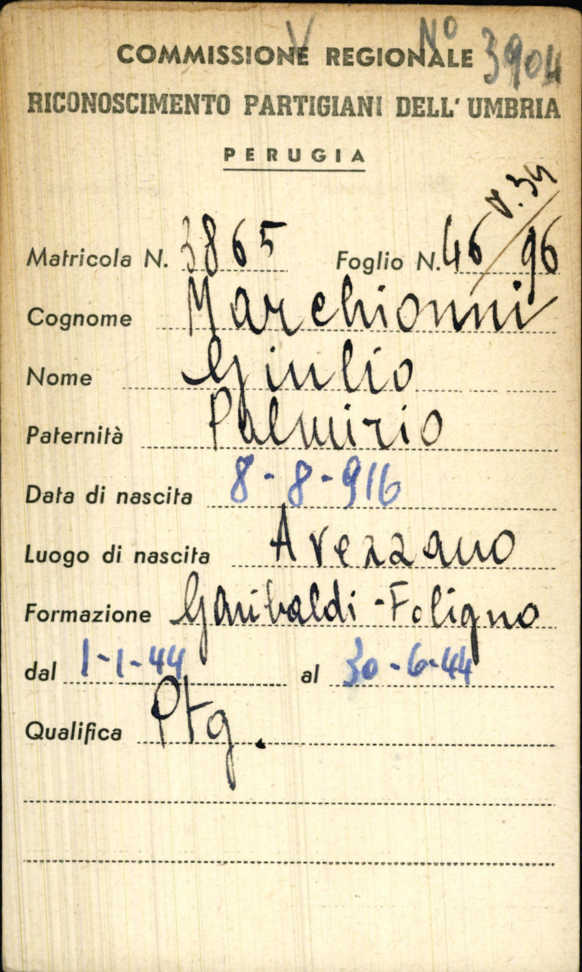 V Nº 3904
COMMISSIONE REGIONALE
RICONOSCIMENTO PARTIGIANI DELL'UMBRIA
PERUGIA
V. 34
Matricola N. 3865 Foglio N. 46/96
Cognome Marchionni
Nome Giulio
Paternità Palmirio
Data di nascita 8-8-916
Luogo di nascita Avezzano
Formazione Garibaldi - Foligno
dal 1-1-44 al 30-6-44
Qualifica Ptg.